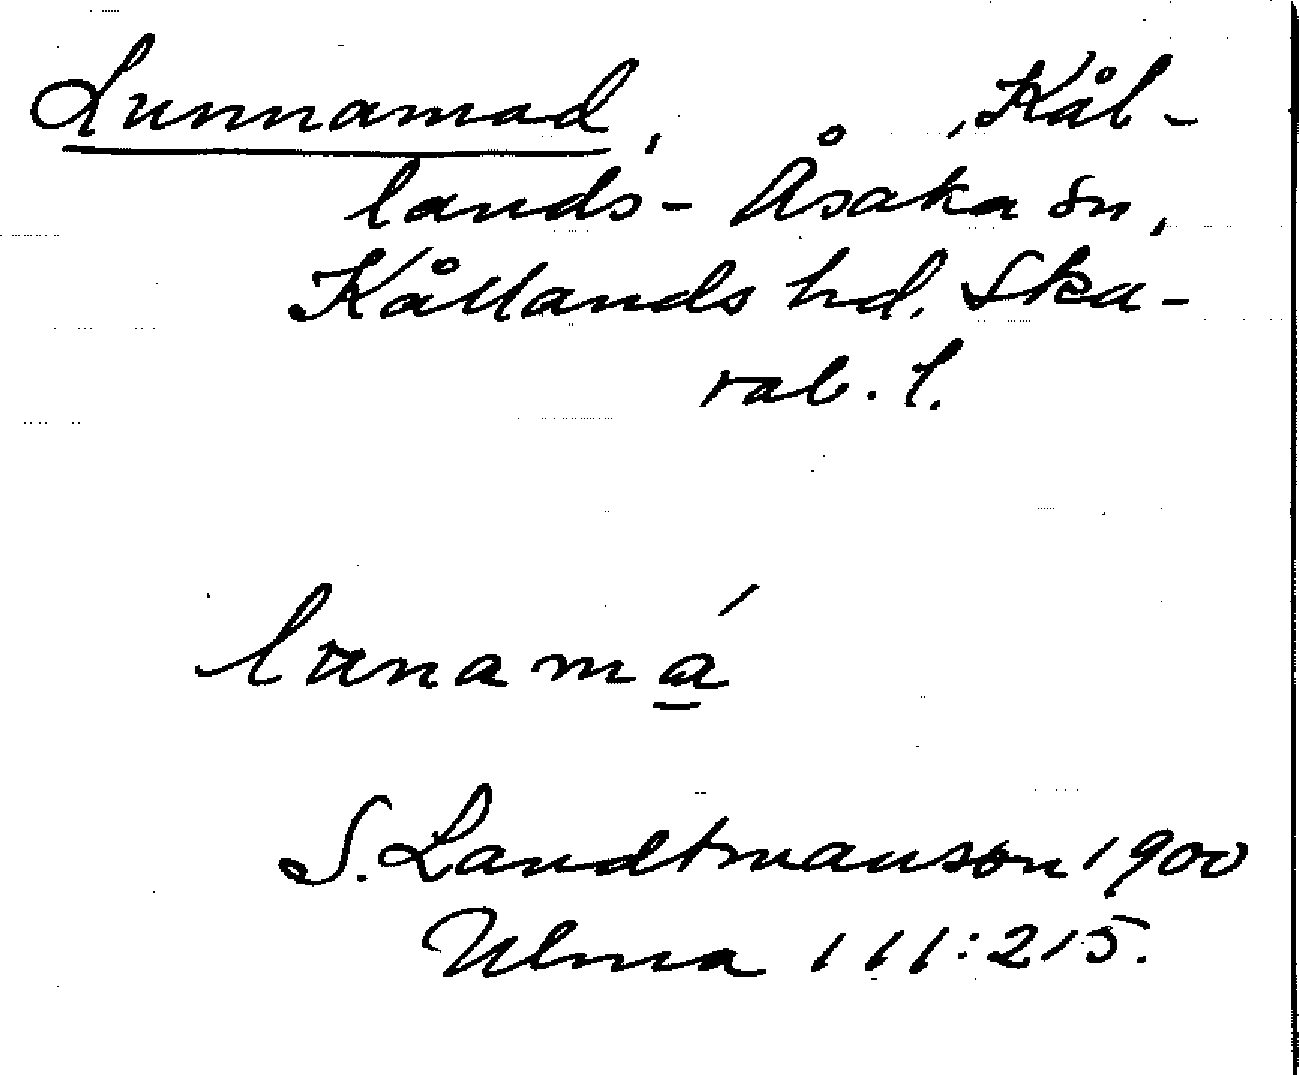 Lunnamad, , Kål-
lands-Åsaka sn,
Kållands hd. Ska-
rab. l.
lunamá
S. Landtmanson 1900
Ulma 111:215.